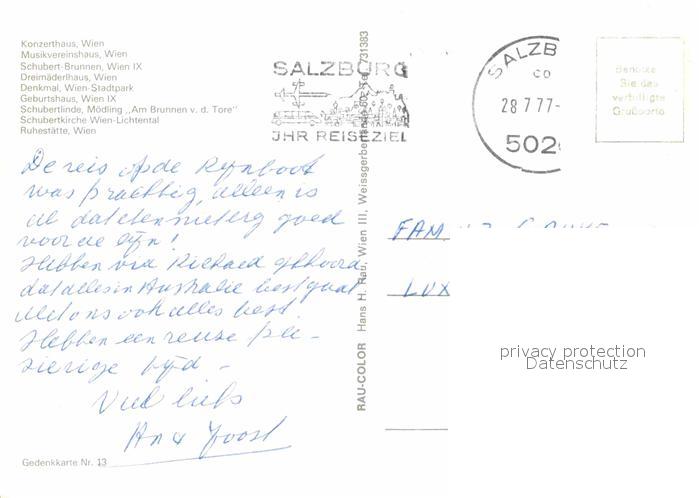 Konzerthaus, Wien
Musikvereinshaus, Wien
Schubert-Brunnen, Wien IX
Dreimäderlhaus, Wien
Denkmal, Wien-Stadtpark
Geburtshaus, Wien IX
Schubertlinde, Mödling „Am Brunnen v. d. Tore"
Schubertkirche Wien-Lichtental
Ruhestätte, Wien
De reis op de Rijnboot
was prachtig, alleen is
al dat eten niet erg goed
voor de lijn!
Hebben van Richard gehoord
dat alles in Australië best gaat
Met ons ook alles best.
Hebben een reuze ple-
zierige tijd -
Viel liebs
An & Joost
Gedenkkarte Nr. 13
RAU-COLOR Hans H. Rau, Wien III, Weissgerber 731383
SALZBURG
JHR REISEZIEL
SALZB
CO
28 7 77-
502
Benütze
Sie das
verbilligte
Grußporto
FAM
LUX
privacy protection
Datenschutz